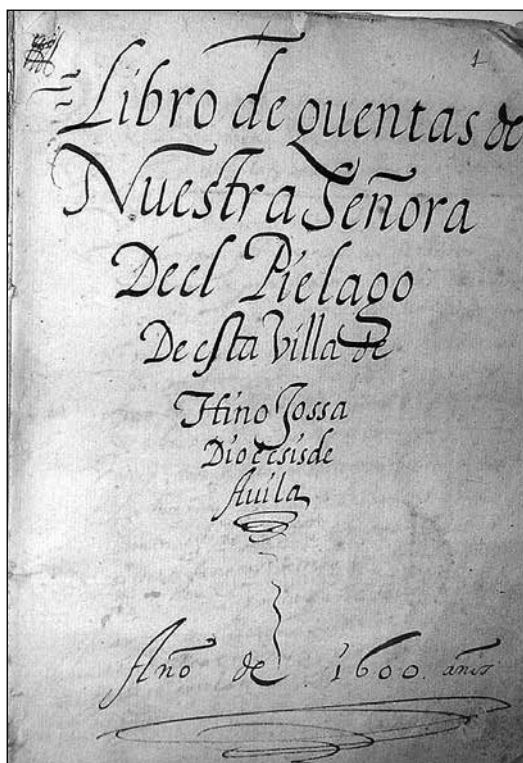 1
Libro de quentas de
Nuestra Señora
Decl Pielago
De esta Villa de
Hino Jossa
Diocesis de
Auila
Año de 1600 años